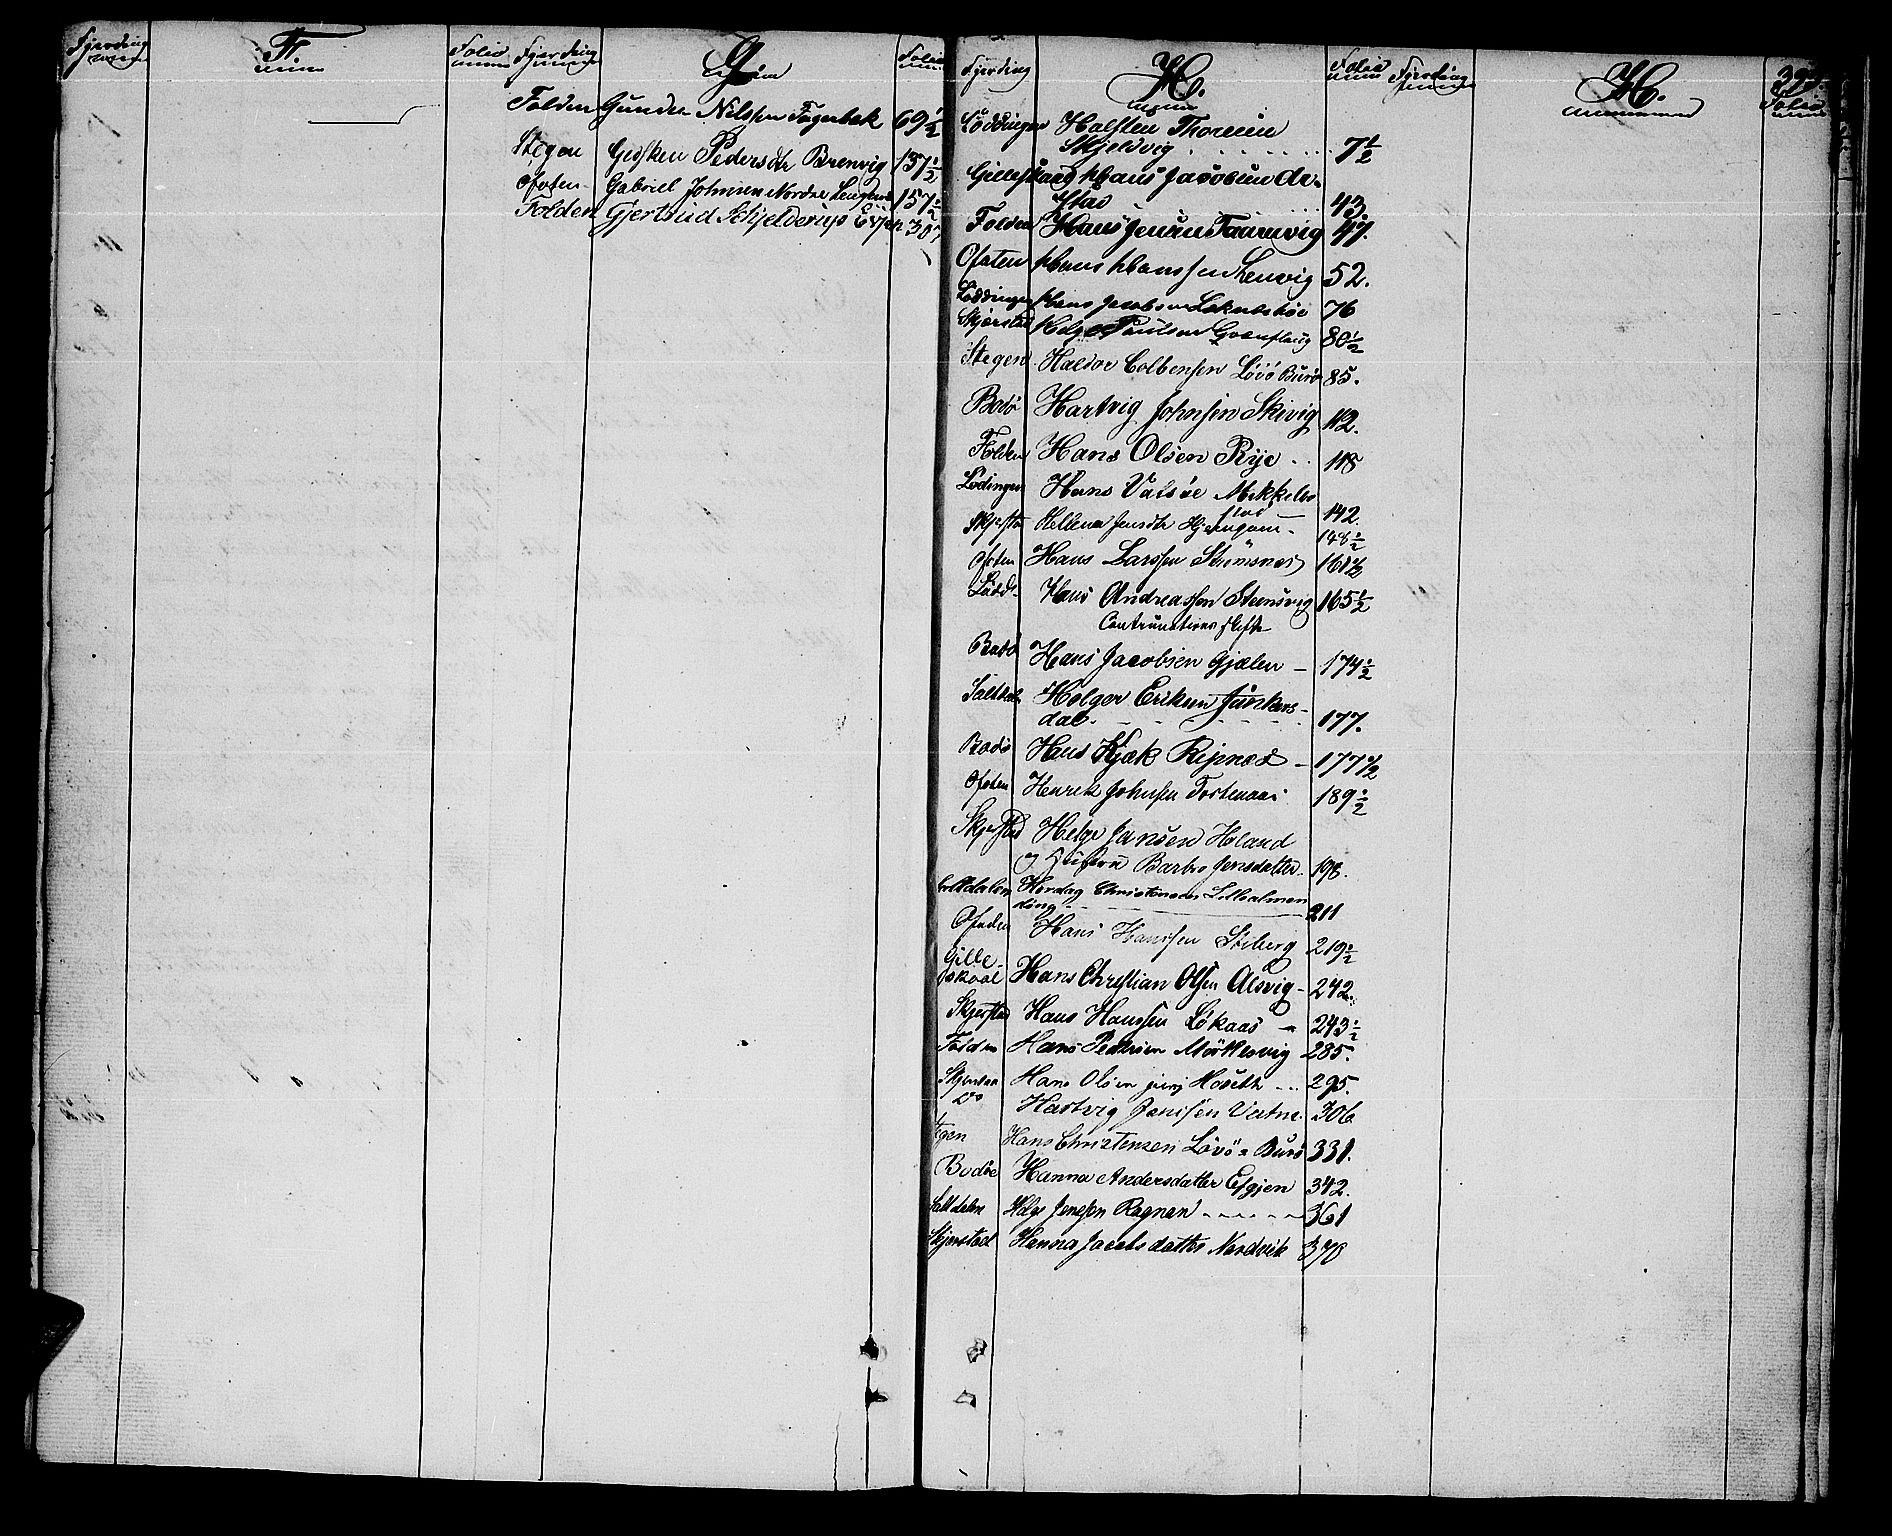 Fjerding
F.
Folio
Fjerding
G
Folio
Folden Gunder Nilssen Fagerbak 69 1/2
Stegen Gjesken Pedersdtr Brenvig 151 1/2
Ofoten Gabriel Johnsen Nordre 157 1/2
Folden Gjertrud Schjelderup Evjen 307
Fjerding
H.
Folio
Fjerding
H.
Folio
Löddingen Halsten Thoresen
Skjelvig 7 1/2
Gilleskaal Hans Jacobsen
stad 43.
Folden Hans Jensen 47.
Ofoten Hans Hanssen Lenvig 52.
Löddingen Hans Jacobsen 76
Skjerstad Helge Paulsen 80 1/2
Stegen Haldor Colbensen Lövö Burö 85.
Bodö Hartvig Johnsen Skivig 112.
Folden Hans Olsen Rye 118
Lödingen Hans Valsöe Mikkelbo
stad 142.
Skjerstad Hellena Jensdtr 148 1/2
Ofoten Hans Larssen Strömsnes 161 1/2
Lödd. Hans Andreassen Steensvig 165 1/2
Continuations skifte
Bodö Hans Jacobsen Gjælen 174 1/2
Saltdalen Holger Eriksen Junkers-
dal 177.
Bodö Hans Kjæk Ripnæs 177 1/2
Ofoten Henrik Johnsen 189 1/2
Skjerstad Helge Jansen Holand
og Hustru Barbro Jensdatter 198.
Saltdalen Herdag Christensen
211
Ofoden Hans Hanssen Stiberg 219 1/2
Gille-
skaal Hans Christian Olsen Alsvig 242.
Skjerstad Hans Hanssen Lökaas 243 1/2
Folden Hans Pedersen Mörkesvig 285.
Skjerstad Hans Olsen Hoseth 295.
Do Hartvig Jenssen Vatne 306
tegen Hans Christensen Lövö = Burö 331.
Bodöe Hanna Andersdatter Efgjen 342.
Saltdalen Helge Jenssen Rognan 361
Skjerstad Hanna Jacobsdatter Nordvik 378